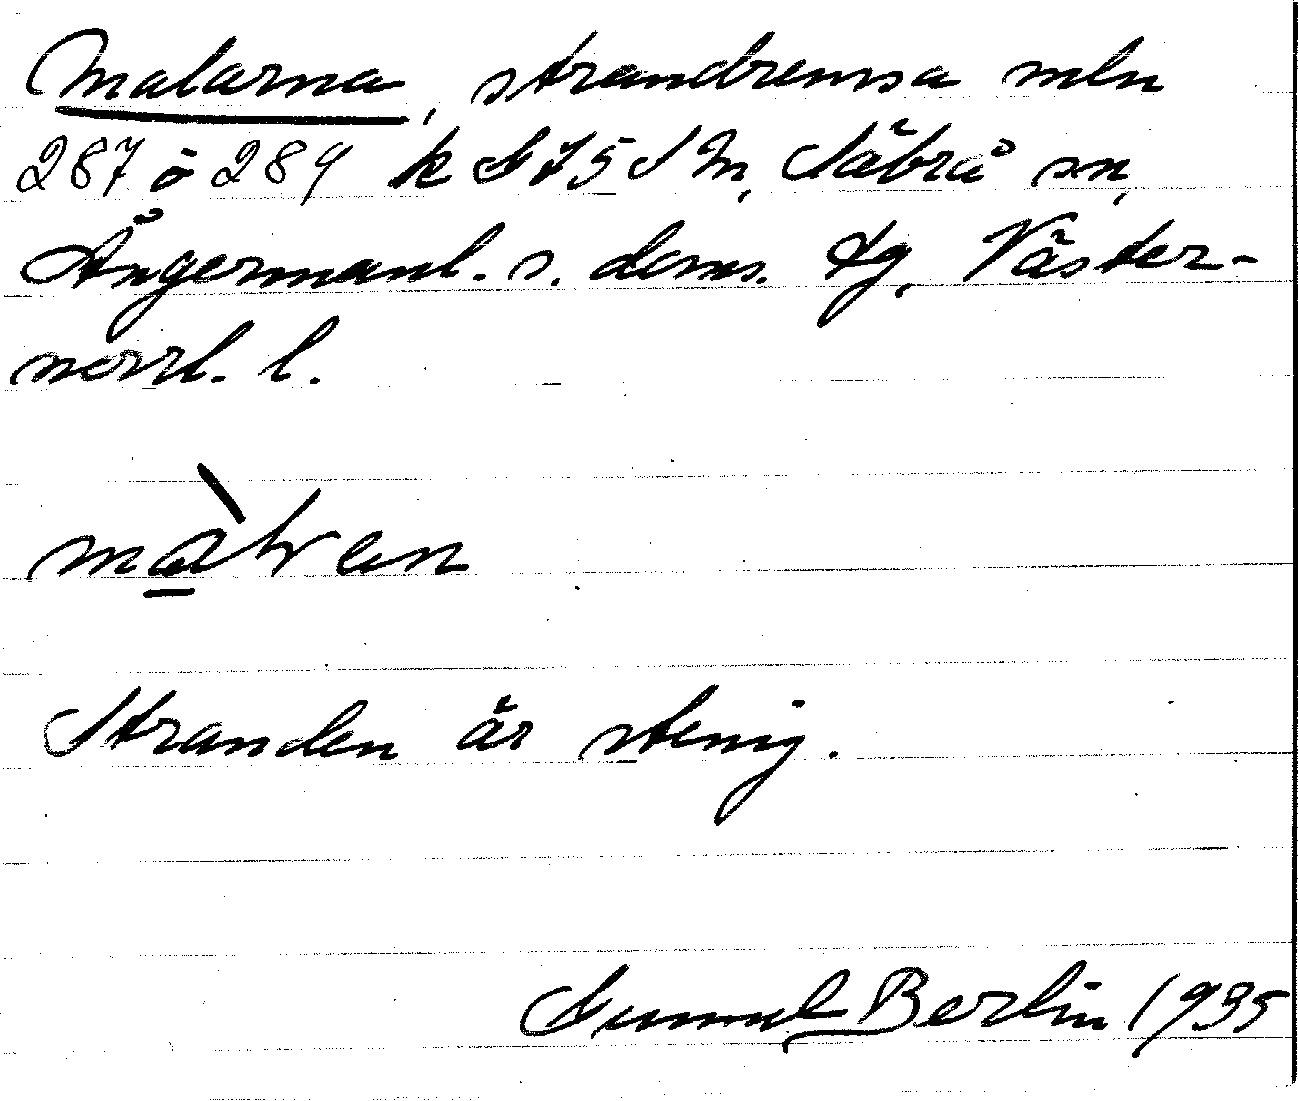 Malarna, strandremsa mln
287 o 289 k S 75 S M, Säbrå sn,
Ångermanl. s. doms. tg, Väster-
norrl. l.
Stranden är stenig.
Gunnel Berlin 1935